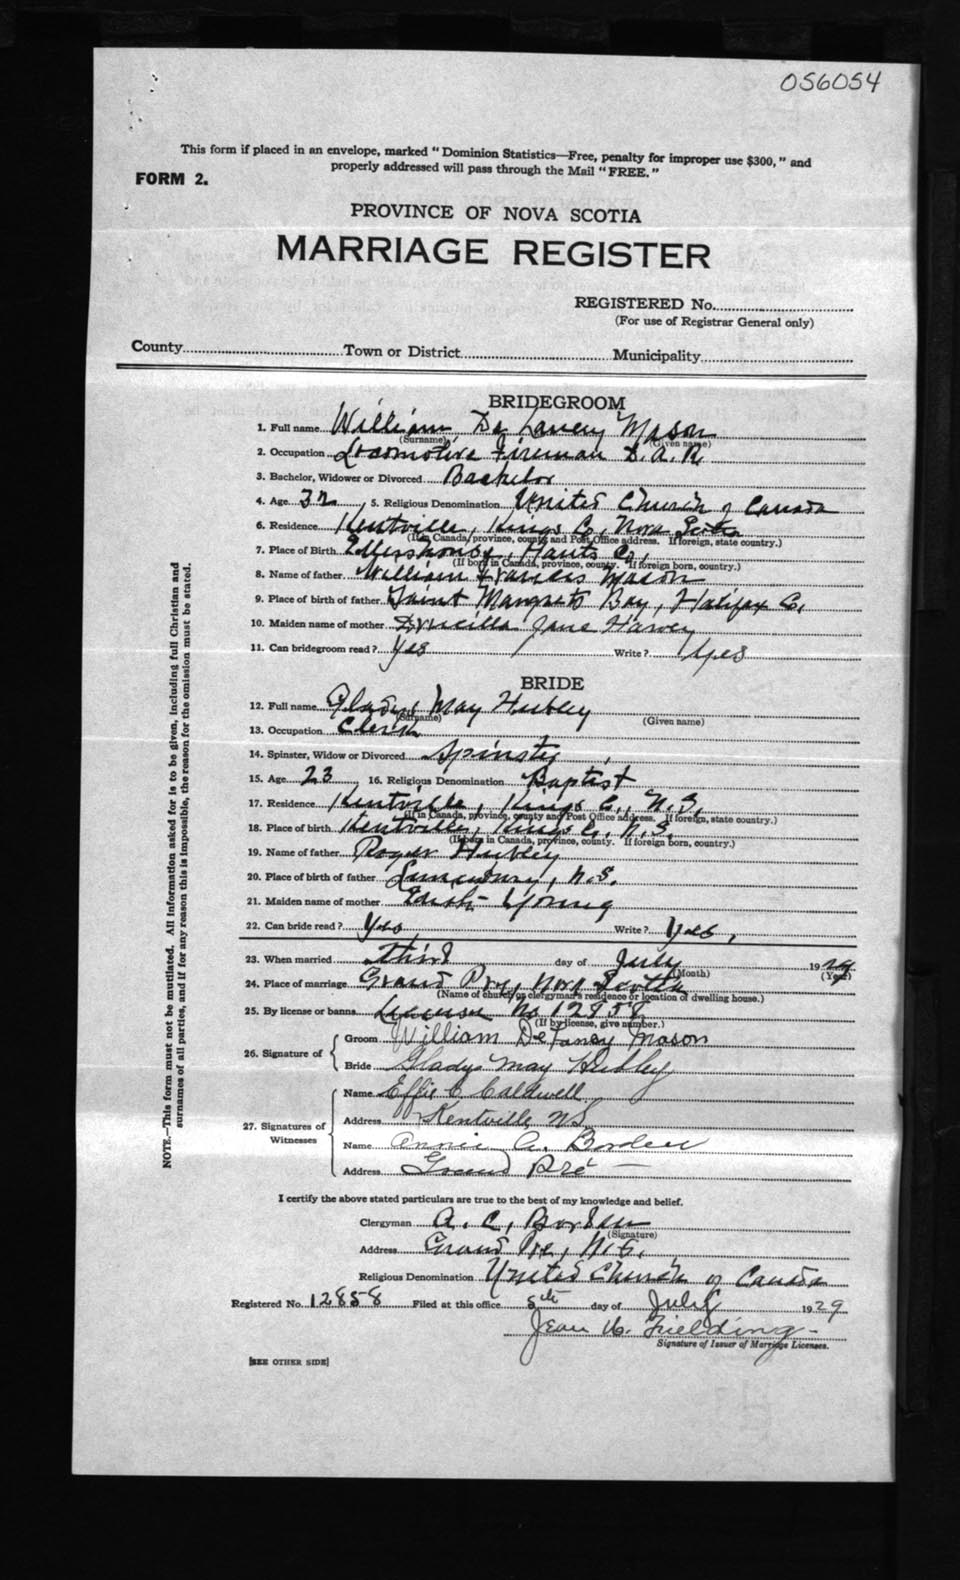 056054
This form if placed in an envelope, marked "Dominion Statistics—Free, penalty for improper use $300," and
properly addressed will pass through the Mail "FREE."
FORM 2.
PROVINCE OF NOVA SCOTIA
MARRIAGE REGISTER
REGISTERED No.
(For use of Registrar General only)
County Town or District Municipality
BRIDEGROOM
1. Full name William De Lancey Mason
(Surname) (Given name)
2. Occupation Locomotive Fireman D.A.R.
3. Bachelor, Widower or Divorced Bachelor
4. Age 32, 5. Religious Denomination United Church of Canada
6. Residence Kentville, Kings Co, Nova Scotia
(If in Canada, province, county and Post Office address. If foreign, state country.)
7. Place of Birth Ellershouse, Hants Co.
(If born in Canada, province, county. If foreign born, country.)
8. Name of father William Francis Mason
9. Place of birth of father Saint Margrets Bay, Halifax Co.
10. Maiden name of mother Drucilla Jane Harvey
11. Can bridegroom read? Yes Write? Yes
BRIDE
12. Full name Gladys May Hubley
(Surname) (Given name)
13. Occupation Clerk
14. Spinster, Widow or Divorced Spinster
15. Age 23 16. Religious Denomination Baptist
17. Residence Kentville, Kings Co., N.S.
(If in Canada, province, county and Post Office address. If foreign, state country.)
18. Place of birth Kentville, Kings Co. N.S.
(If born in Canada, province, county. If foreign born, country.)
19. Name of father Roger Hubley
20. Place of birth of father Lunenburg, N.S.
21. Maiden name of mother Edith Young
22. Can bride read? Yes Write? Yes.
23. When married third day of July 1929
(Month) (Year)
24. Place of marriage Grand Pre, Nova Scotia
(Name of church or clergyman's residence or location of dwelling house.)
25. By license or banns License No 12858
(If by license, give number.)
26. Signature of Groom William DeLancy Mason
Bride Gladys May Hubley
27. Signatures of Witnesses Name Effie C. Caldwell
Address Kentville, NS
Name Annie A. Borden
Address Grand Pré
I certify the above stated particulars are true to the best of my knowledge and belief.
Clergyman A. C. Borden
(Signature)
Address Grand Pre, N.S.
Religious Denomination United Church of Canada
Registered No. 12858 Filed at this office 8th day of July 1929
Jean W. Fielding
Signature of Issuer of Marriage Licenses.
[SEE OTHER SIDE]
NOTE.—This form must not be mutilated. All information asked for is to be given, including full Christian and
surnames of all parties, and if for any reason this is impossible, the reason for the omission must be stated.